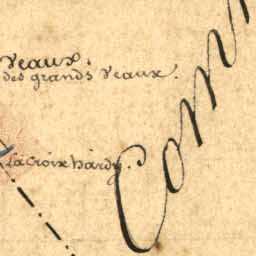 Veaux.
des grands Veaux.
La Croix hardy.
Com